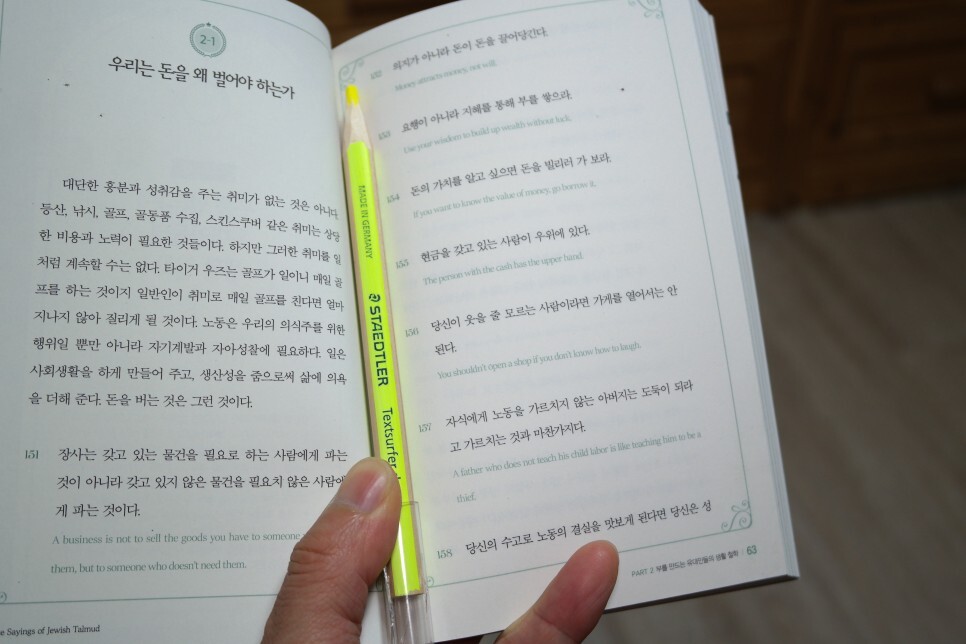 2-1
우리는 돈을 왜 벌어야 하는가
대단한 흥분과 성취감을 주는 취미가 없는 것은 아니다.
등산, 낚시, 골프, 골동품 수집, 스킨스쿠버 같은 취미는 상당
한 비용과 노력이 필요한 것들이다. 하지만 그러한 취미를 일
처럼 계속할 수는 없다. 타이거 우즈는 골프가 일이니 매일 골
프를 하는 것이지 일반인이 취미로 매일 골프를 친다면 얼마
지나지 않아 질리게 될 것이다. 노동은 우리의 의식주를 위한
행위일 뿐만 아니라 자기계발과 자아성찰에 필요하다. 일은
사회생활을 하게 만들어 주고, 생산성을 줌으로써 삶에 의욕
을 더해 준다. 돈을 버는 것은 그런 것이다.
151 장사는 갖고 있는 물건을 필요로 하는 사람에게 파는
것이 아니라 갖고 있지 않은 물건을 필요치 않은 사람에
게 파는 것이다.
A business is not to sell the goods you have to someone
them, but to someone who doesn't need them.
Sayings of Jewish Talmud
MADE IN GERMANY
STAEDTLER
Textsurfer
152 의지가 아니라 돈이 돈을 끌어당긴다.
Money attracts money, not will.
153 요행이 아니라 지혜를 통해 부를 쌓으라.
Use your wisdom to build up wealth without luck.
154 돈의 가치를 알고 싶으면 돈을 빌리러 가 보라.
If you want to know the value of money, go borrow it.
155 현금을 갖고 있는 사람이 우위에 있다.
The person with the cash has the upper hand.
156 당신이 웃을 줄 모르는 사람이라면 가게를 열어서는 안
된다.
You shouldn't open a shop if you don't know how to laugh.
157 자식에게 노동을 가르치지 않는 아버지는 도둑이 되라
고 가르치는 것과 마찬가지다.
A father who does not teach his child labor is like teaching him to be a
thief.
158 당신의 수고로 노동의 결실을 맛보게 된다면 당신은 성
PART 2 부를 만드는 유대인들의 생활 철학 63